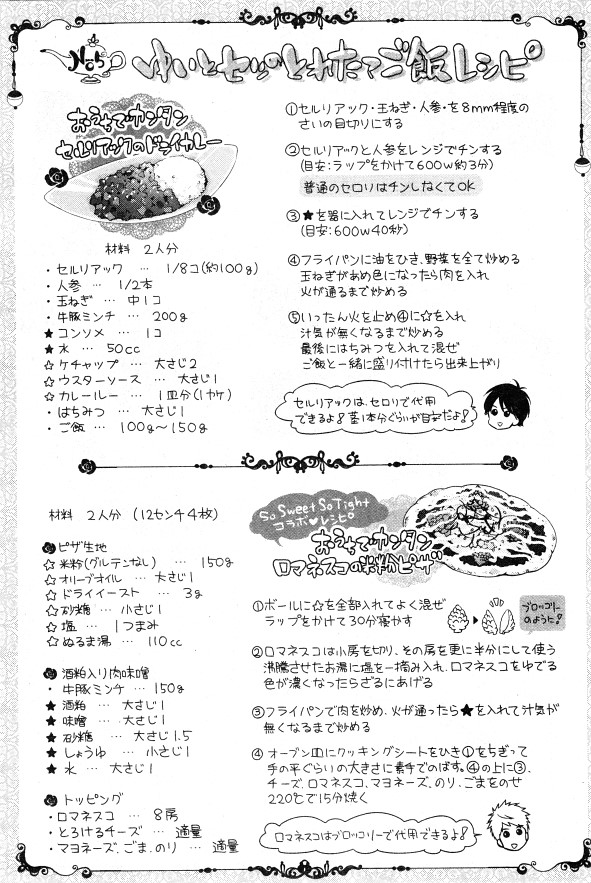 No5
ゆいとセツのとれたてご飯レシピ
おうちでカンタン
セルリアックのドライカレー
材料 2人分
・セルリアック … 1/8コ(約100g)
・人参 … 1/2本
・玉ねぎ … 中1コ
・牛豚ミンチ … 200g
★コンソメ … 1コ
★水 … 50cc
☆ケチャップ … 大さじ2
☆ウスターソース … 大さじ1
☆カレールー … 1皿分(1カケ)
・はちみつ … 大さじ1
・ご飯 … 100g〜150g
①セルリアック・玉ねぎ・人参・を8mm程度の
さいの目切りにする
②セルリアックと人参をレンジでチンする
(目安:ラップをかけて600w約3分)
普通のセロリはチンしなくてOK
③★を器に入れてレンジでチンする
(目安:600w40秒)
④フライパンに油をひき、野菜を全て炒める
玉ねぎがあめ色になったら肉を入れ
火が通るまで炒める
⑤いったん火を止め④に☆を入れ
汁気が無くなるまで炒める
最後にはちみつを入れて混ぜ
ご飯と一緒に盛り付けたら出来上がり
セルリアックは、セロリで代用
できるよ!茎1本分ぐらいが目安だよ!
So Sweet So Tight
コラボ♥レシピ
おうちでカンタン
ロマネスコの米粉ピザ
材料 2人分 (12センチ4枚)
ピザ生地
☆米粉(グルテンなし) … 150g
☆オリーブオイル … 大さじ1
☆ドライイースト … 3g
☆砂糖 … 小さじ1
☆塩 … 1つまみ
☆ぬるま湯 … 110cc
酒粕入り肉味噌
・牛豚ミンチ … 150g
★酒粕 … 大さじ1
★味噌 … 大さじ1
★砂糖 … 大さじ1.5
★しょうゆ … 小さじ1
★水 … 大さじ1
トッピング
・ロマネスコ … 8房
・とろけるチーズ … 適量
・マヨネーズ、ごま、のり … 適量
①ボールに☆を全部入れてよく混ぜ
ラップをかけて30分寝かす
ブロッコリー
のように!
②ロマネスコは小房を切り、その房を更に半分にして使う
沸騰させたお湯に塩を一摘み入れ、ロマネスコをゆでる
色が濃くなったらざるにあげる
③フライパンで肉を炒め、火が通ったら★を入れて汁気が
無くなるまで炒める
④オーブン皿にクッキングシートをひき①をちぎって
手の平ぐらいの大きさに素手でのばす。④の上に③、
チーズ、ロマネスコ、マヨネーズ、のり、ごまをのせ
220℃で15分焼く
ロマネスコはブロッコリーで代用できるよ!